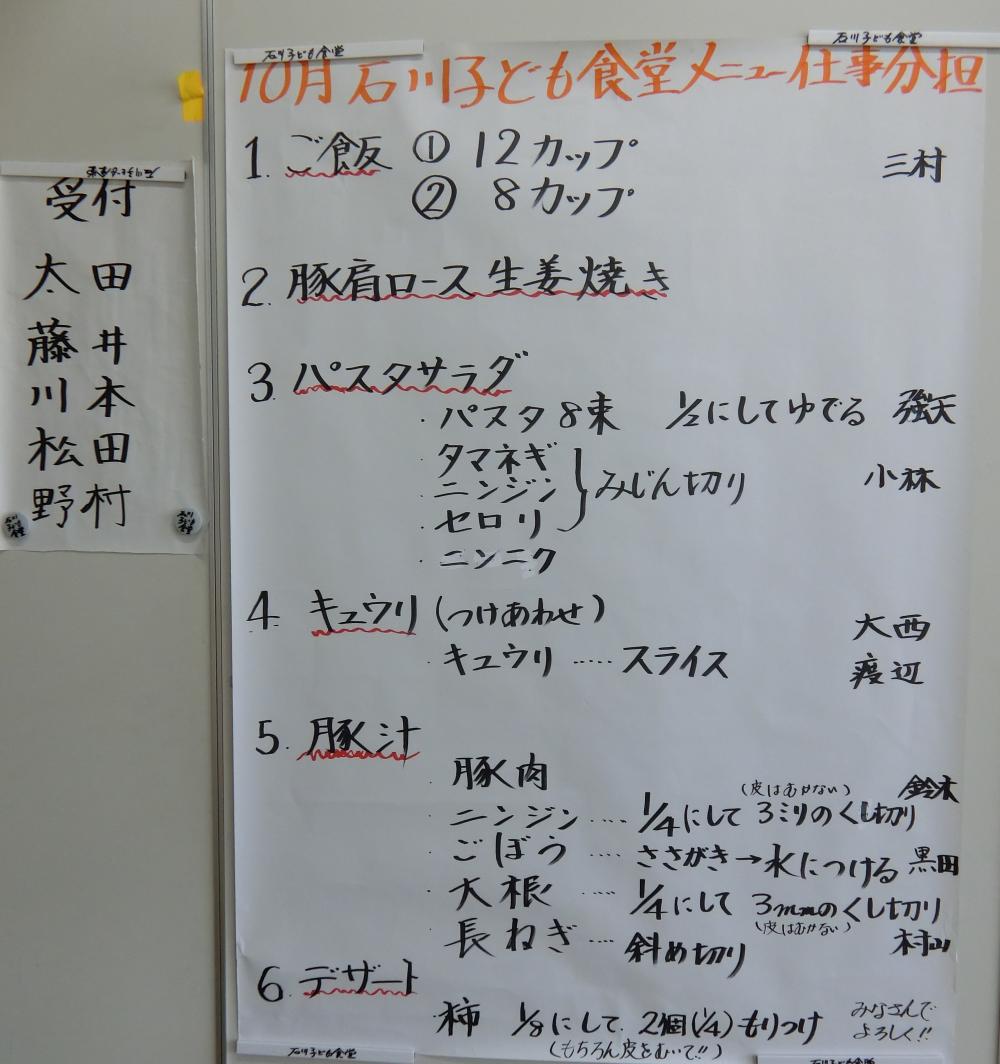 石川子ども食堂
石川子ども食堂
10月 石川子ども食堂メニュー仕事分担
1. ご飯 ① 12カップ 三村
② 8カップ
2. 豚肩ロース 生姜焼き
3. パスタサラダ
・パスタ 8束 1/2にしてゆでる 強矢
・タマネギ
・ニンジン } みじん切り 小林
・セロリ
・ニンニク
4. キュウリ (つけあわせ) 大西
・キュウリ ‥‥ スライス 渡辺
5. 豚汁
・豚肉 (皮はむかない) 鈴木
・ニンジン ‥‥ 1/4にして 3ミリのくし切り
・ごぼう ‥‥ ささがき→水につける 黒田
・大根 ‥‥ 1/4にして 3mmのくし切り
・長ねぎ ‥‥ 斜め切り (皮はむかない) 村山
6. デザート
・柿 1/8にして 2個(1/4)もりつけ みなさんで
よろしく!!
(もちろん皮をむいて!!)
石川子ども食堂
石川子ども食堂
受付
太田
藤井
川本
松田
野村